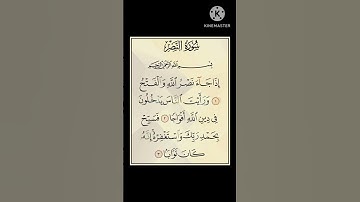 KINEMASTER
سُورَةُ النَّصْرِ
بِسْمِ اللَّهِ الرَّحْمَٰنِ الرَّحِيمِ
إِذَا جَاءَ نَصْرُ اللَّهِ وَالْفَتْحُ
١ وَرَأَيْتَ النَّاسَ يَدْخُلُونَ
فِي دِينِ اللَّهِ أَفْوَاجًا ٢ فَسَبِّحْ
بِحَمْدِ رَبِّكَ وَاسْتَغْفِرْهُ إِنَّهُ
كَانَ تَوَّابًا ٣